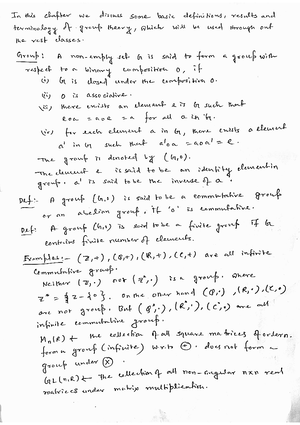 In this chapter we discuss some basic definitions, results and
terminology of group theory, which will be used through out
the rest classes.
Group: A non-empty set G is said to form a group with
respect to a binary composition o, if
(i) G is closed under the composition o.
(ii) o is associative.
(iii) there exists an element e in G such that
eoa = aoe = a for all a in G.
(iv) for each element a in G, there exists a element
a' in G such that a'oa = aoa' = e.
The group is denoted by (G,o).
The element e is said to be an identity element in
group. a' is said to be the inverse of a.
Def: A group (G,o) is said to be a commutative group
or an abelian group, if 'o' is commutative.
Def: A group (G,o) is said to be a finite group if G
contains finite number of elements.
Examples:- (Z,+), (Q,+), (R,+), (C,+) are all infinite
commutative group.
Neither (Z,·) nor (Z*,·) is a group. Where
Z* = Z-{0}. On the other hand (Q,·), (R,·), (C,·)
are not group. But (Q*,·), (R*,·), (C*,·) are all
infinite commutative group.
Mn(R) the collection of all square matrices of order n.
form a group (infinite) w.r.to +. does not form a
group under X.
GL(n,R) The collection of all non-singular nxn real
matrices under matrix multiplication.